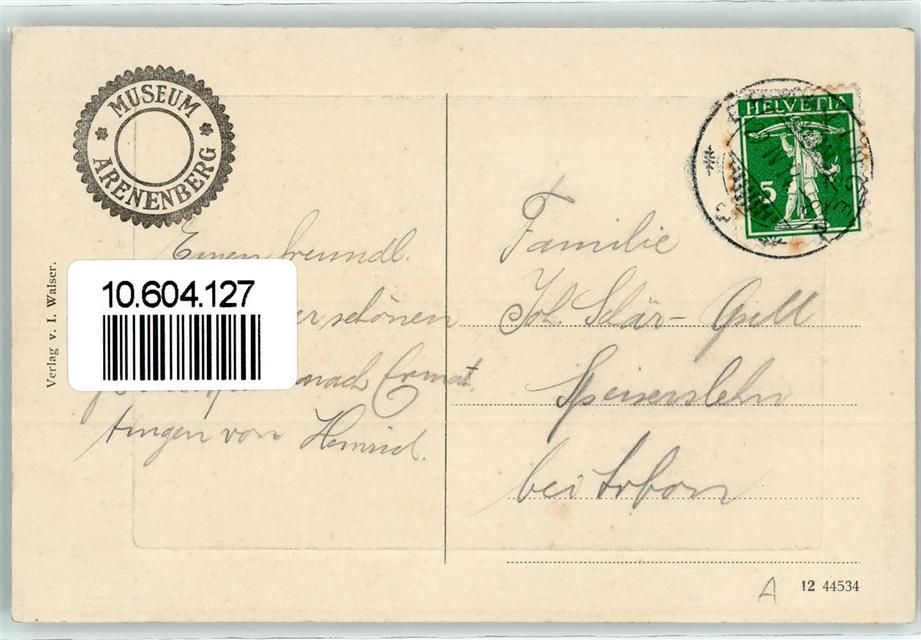 MUSEUM
ARENENBERG
HELVETIA
5
Einen freundl.
10.604.127
schönen
nach Ermat.
tingen von Heinrich.
Verlag v. I. Walser.
Familie
Joh. Schär-Gsell
Speiserslehn
bei Arbon
A
12 44534